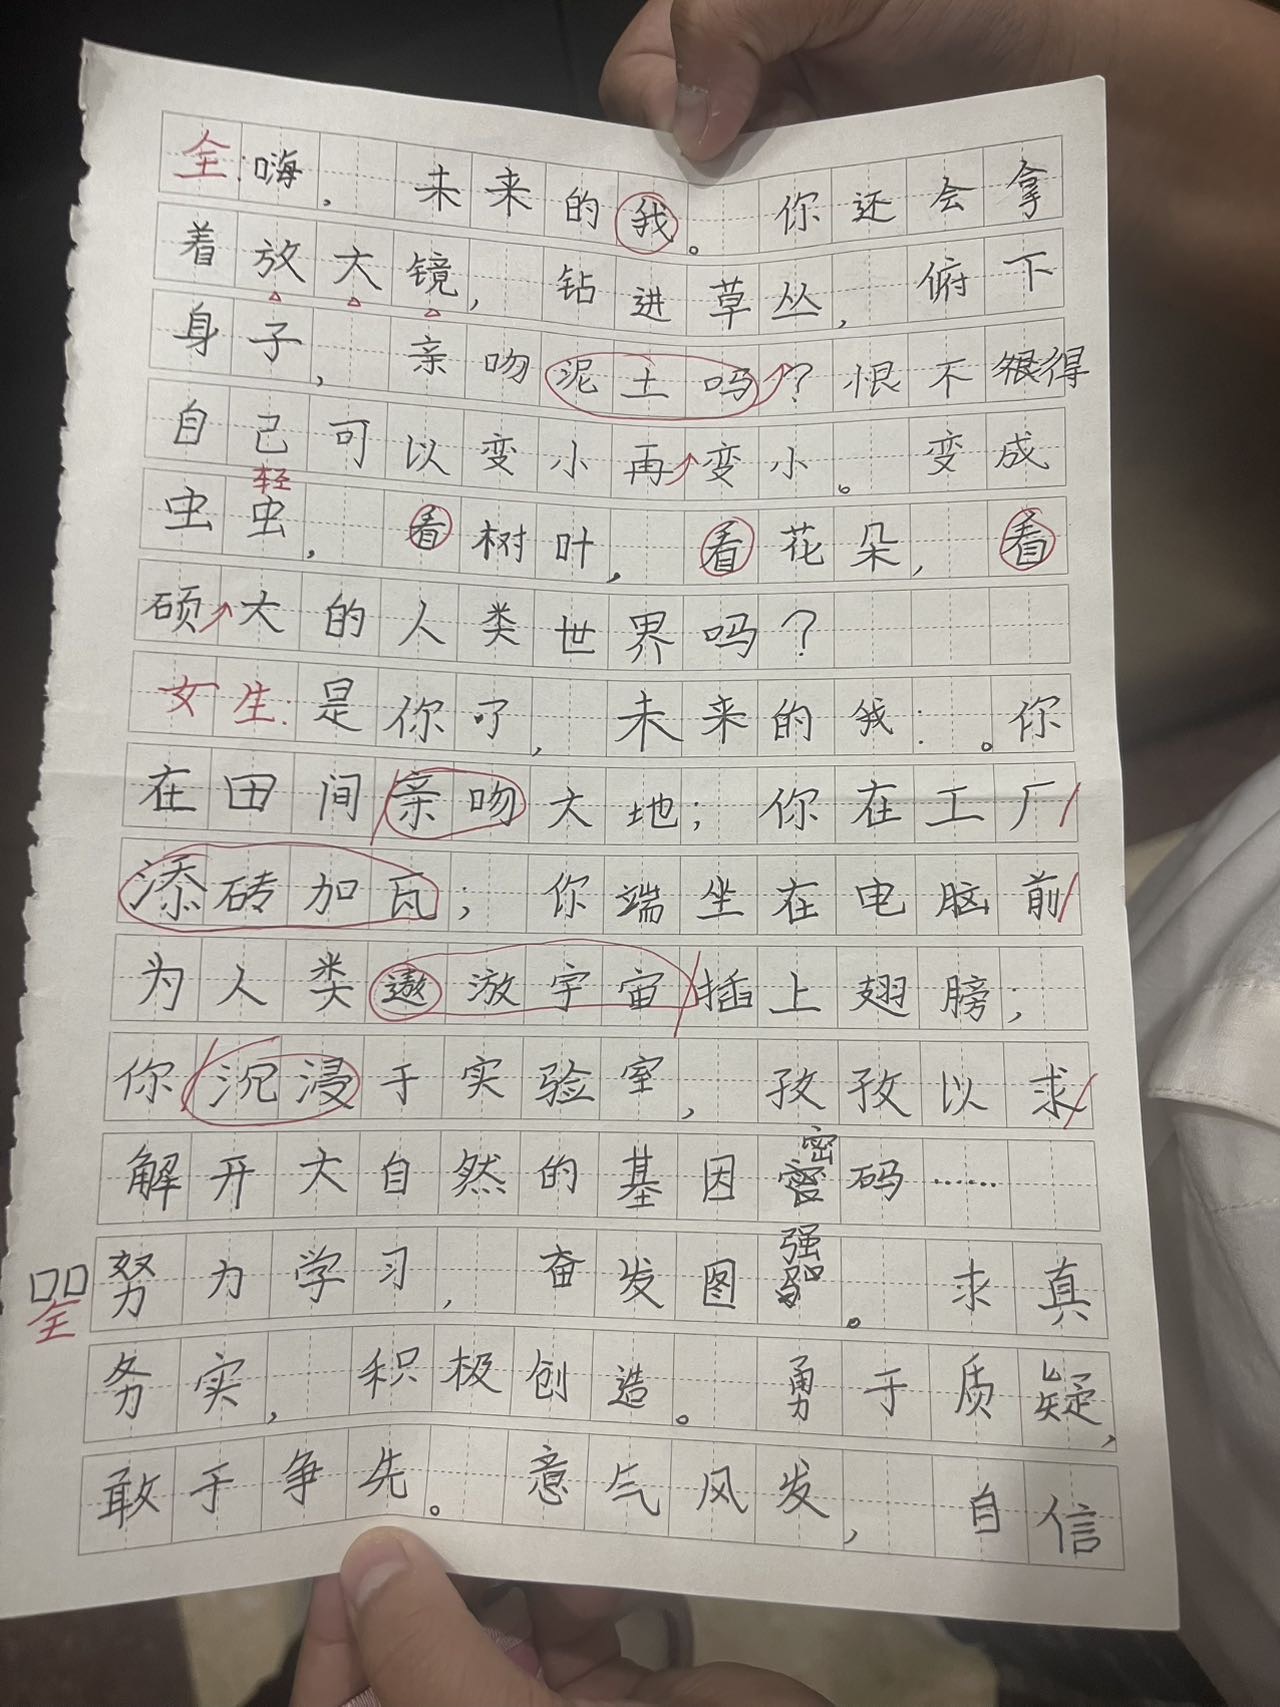 全:嗨,未来的我。你还会拿
着放大镜,钻进草丛,俯下
身子,亲吻泥土吗?恨不得
自己可以变小再变小。变成
轻
虫虫,看树叶,看花朵,看
硕大的人类世界吗?
女生:是你了,未来的我:。你
在田间亲吻大地;你在工厂
添砖加瓦;你端坐在电脑前
为人类遨游宇宙插上翅膀;
你沉浸于实验室,孜孜以求
解开大自然的基因密码……
努力学习,奋发图强。求真
全
务实,积极创造。勇于质疑,
敢于争先。意气风发,自信